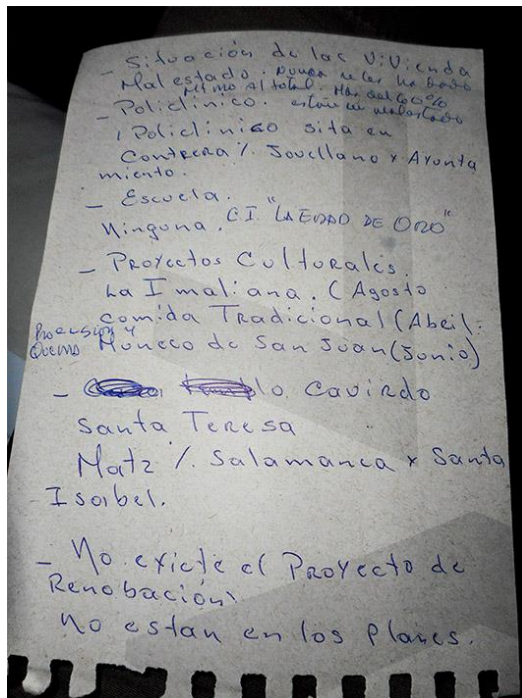 - Situación de las Vivienda
Mal estado. Nunca se les ha dado
Mtmo al total. Mas del 60%
- Policlinico. estan en mal estado
1 Policlinico sita en
Contrera %. Jovellano x Ayunta
miento.
- Escuela.
Ninguna. C.I. "LA EDAD DE ORO"
- Proyectos Culturales.
La Imaliana. (Agosto
Comida Tradicional (Abril.
Procesion y
Quema Muneco de San Juan (Junio)
- lo Cavirdo
Santa Teresa
Matz %. Salamanca x Santa
Isabel.
- No existe el Proyecto de
Renobación.
No estan en los Planes.